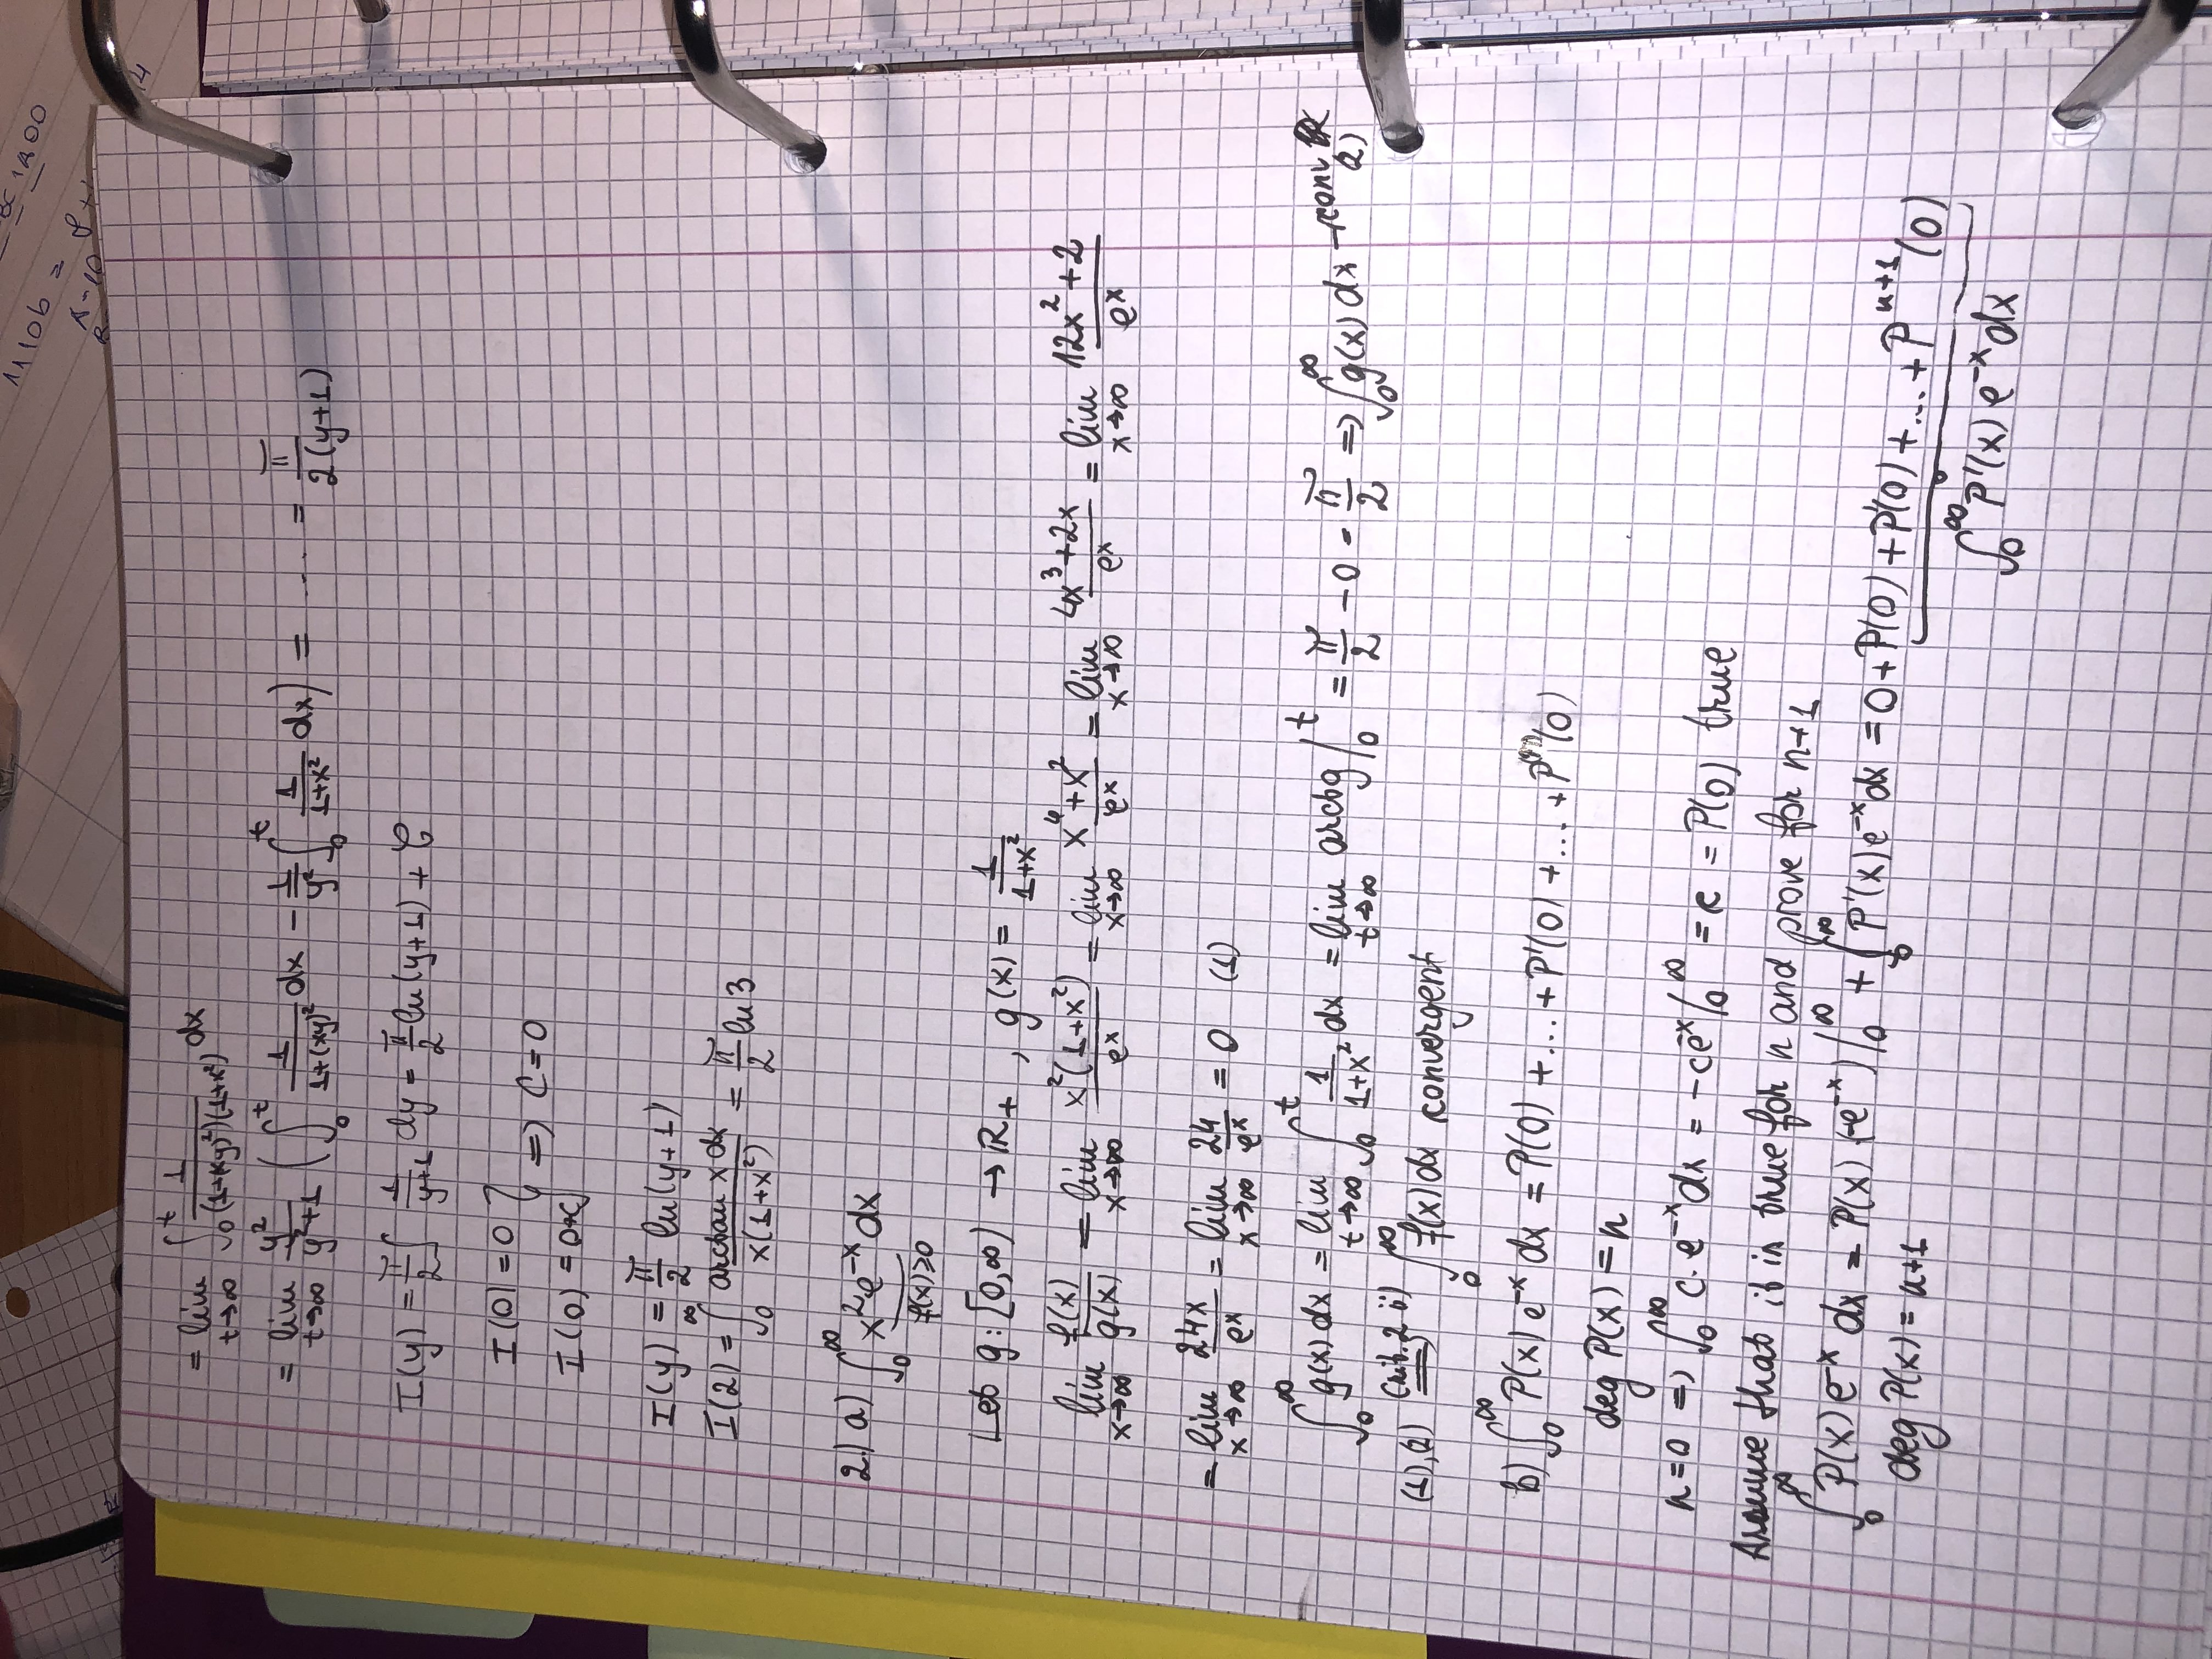 1100
1110b =
A-10
14
= lim t→∞ ∫₀ᵗ 1/((1+(xy)²)(1+x²)) dx
= lim t→∞ y²/(y²+1) (∫₀ᵗ 1/(1+(xy)²) dx - 1/y² ∫₀ᵗ 1/(1+x²) dx) = .... = π/(2(y+1))
I(y) = π/2 ∫ 1/(y+1) dy = π/2 ln(y+1) + C
I(0) = 0
I(0) = 0+C } => C = 0
I(y) = π/2 ln(y+1)
I(2) = ∫₀^∞ arctan x dx/(x(1+x²)) = π/2 ln 3
2.) a) ∫₀^∞ x² e^(-x) dx
f(x)≥0
Let g: [0,∞) → R₊ , g(x) = 1/(1+x²)
lim x→∞ f(x)/g(x) = lim x→∞ x²(1+x²)/eˣ = lim x→∞ (x⁴+x²)/eˣ = lim x→∞ (4x³+2x)/eˣ = lim x→∞ (12x²+2)/eˣ
= lim x→∞ 24x/eˣ = lim x→∞ 24/eˣ = 0 (1)
∫₀^∞ g(x) dx = lim t→∞ ∫₀ᵗ 1/(1+x²) dx = lim t→∞ arctg |₀ᵗ = π/2 - 0 = π/2 => ∫₀^∞ g(x) dx - conv (2)
(1),(2) =(crit. 2 ii)=> ∫₀^∞ f(x) dx convergent
b) ∫₀^∞ P(x) e^(-x) dx = P(0) + ... + P'(0) + ... + P⁽ⁿ⁾(0)
deg P(x) = n
n=0 => ∫₀^∞ c·e^(-x) dx = -ce^(-x) |₀^∞ = c = P(0) true
Assume that it is true for n and prove for n+1
∫₀^∞ P(x) e^(-x) dx = P(x) (-e^(-x)) |₀^∞ + ∫₀^∞ P'(x) e^(-x) dx = 0 + P(0) + P'(0) + ... + Pⁿ⁺¹(0)
deg P(x) = n+1
∫₀^∞ P'(x) e^(-x) dx